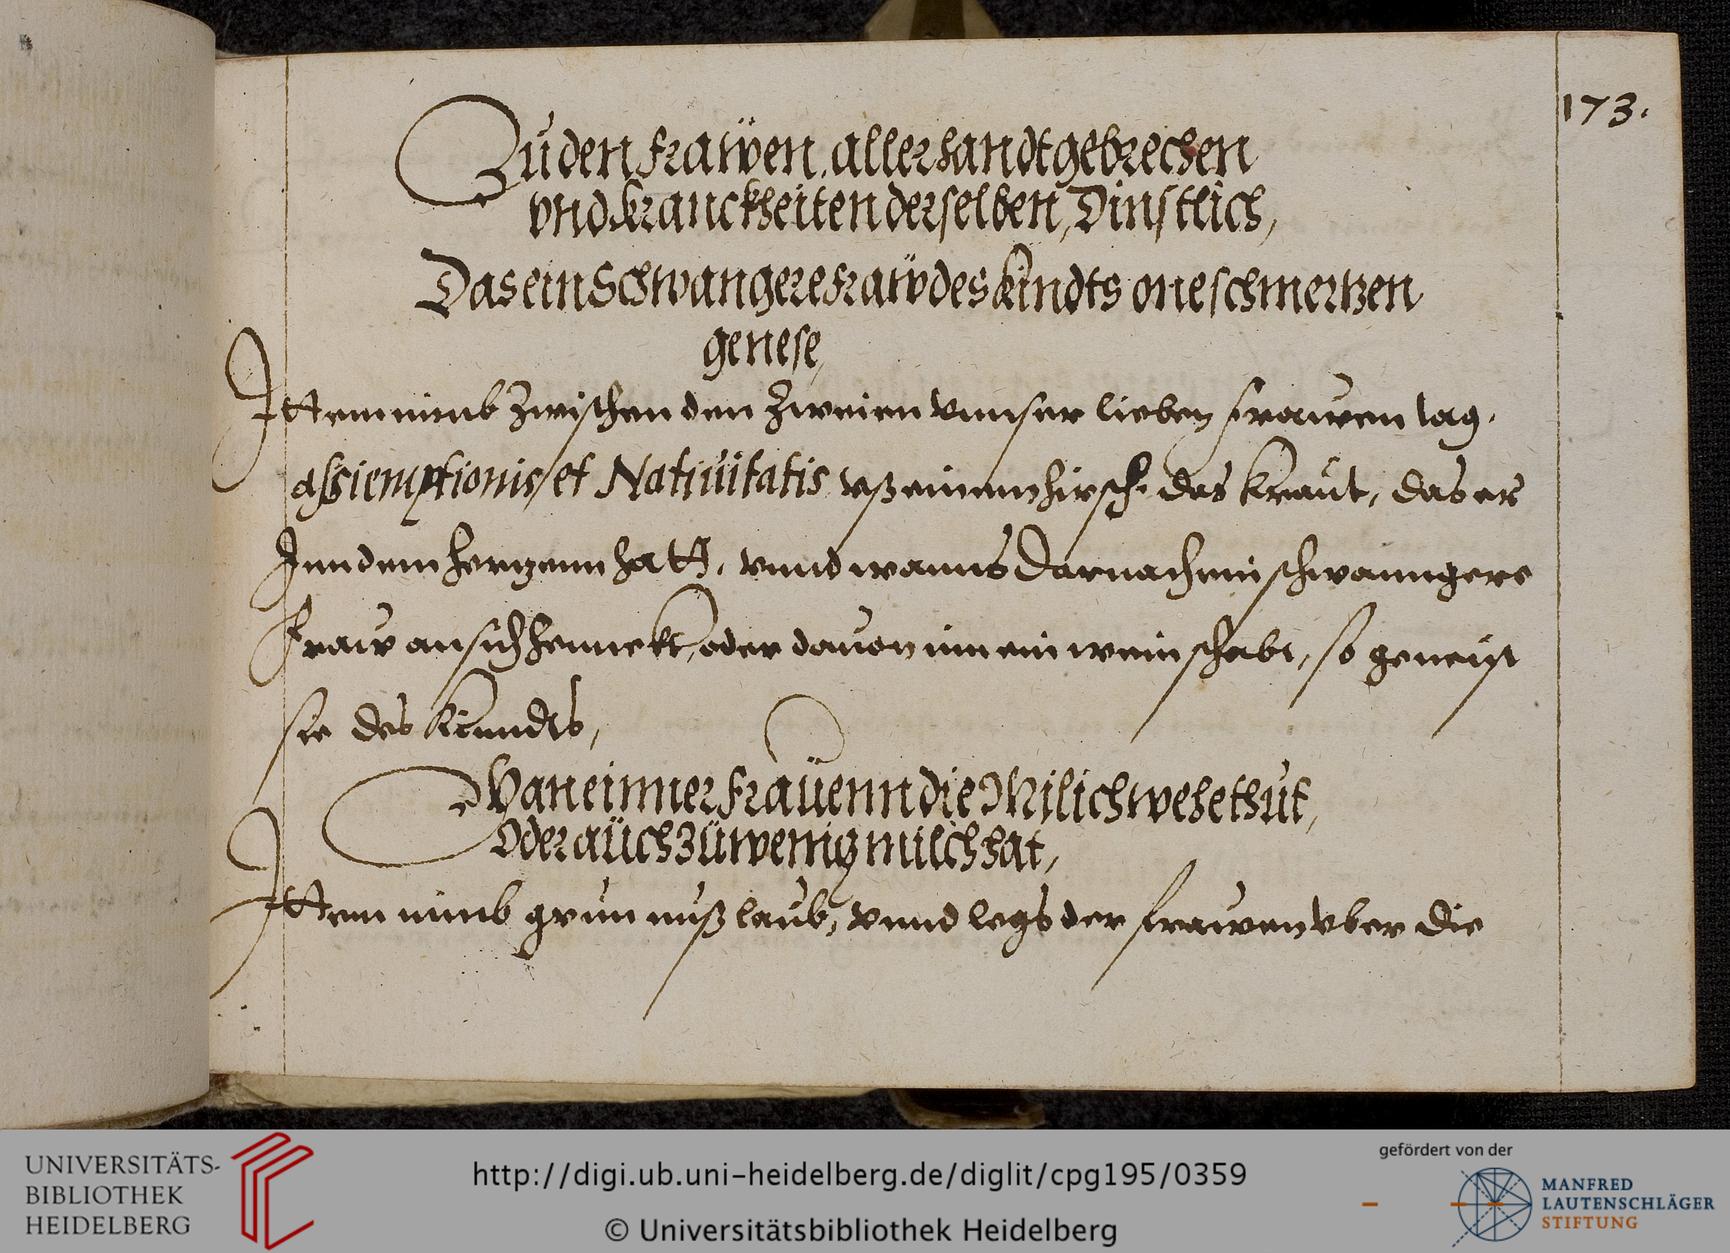 173.
Zu den frawen allerhandt gebrechen
vnd kranckheiten derselben, Dinstlich,
Das ein Schwangere fraw des kindts one schmertzen
genese,
Ittem nimb zwischen den zweien vnnser lieben frawen tag.
assiemptionis, et Natiuitatis vß einem hirsch. das kraut, das er
Inn dem hertzenn hatt, vnnd wanns darnach ein schwanngere
fraw an sich hennckt, oder dauon inn ein wein schabt, so geneist
sie des kinndts,
Wan einner frauenn die Milich wehe thut,
Oder auch zu wenig milch hat,
Ittem nimb grun nußlaub, vnnd legs der frawen vber die
UNIVERSITÄTS-
BIBLIOTHEK
HEIDELBERG
http://digi.ub.uni-heidelberg.de/diglit/cpg195/0359
© Universitätsbibliothek Heidelberg
gefördert von der
MANFRED
LAUTENSCHLÄGER
STIFTUNG